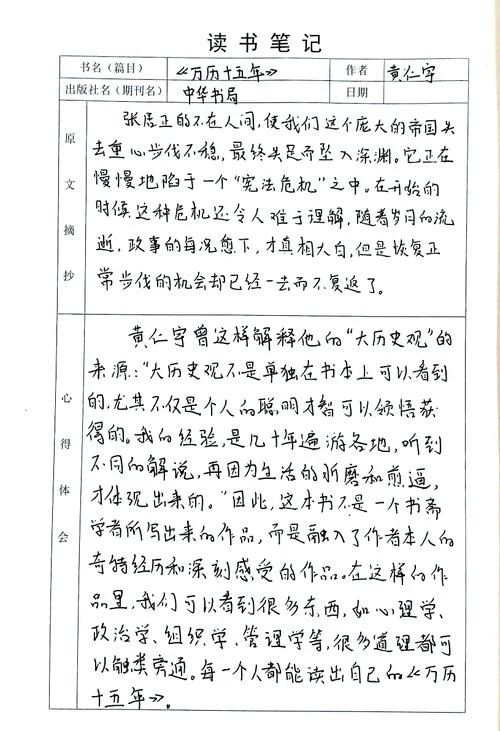 读书笔记
书名（篇目） 《万历十五年》 作者 黄仁宇
出版社名（期刊名） 中华书局 日期
原文摘抄
张居正的不在人间，使我们这个庞大的帝国失
去重心，步伐不稳，最终失足而坠入深渊。它正在
慢慢地陷于一个“宪法危机”之中。在开始的
时候这种危机还令人难于理解，随着岁月的流
逝，政事的每况愈下，才真相大白，但是恢复正
常步伐的机会却已经一去而不复返了。
心得体会
黄仁宇曾这样解释他的“大历史观”的
来源：“大历史观不是单独在书本上可以看到
的，尤其不仅是个人的聪明才智可以领悟获
得的。我的经验，是几十年遍游各地，听到
不同的解说，再因为生活的折磨和煎逼，
才体现出来的。”因此，这本书不是一个书斋
学者所写出来的作品，而是融入了作者本人的
奇特经历和深刻感受的作品。在这样的作
品里，我们可以看到很多东西，如心理学、
政治学、组织学、管理学等，很多道理都可
以触类旁通。每一个人都能读出自己的《万历
十五年》。